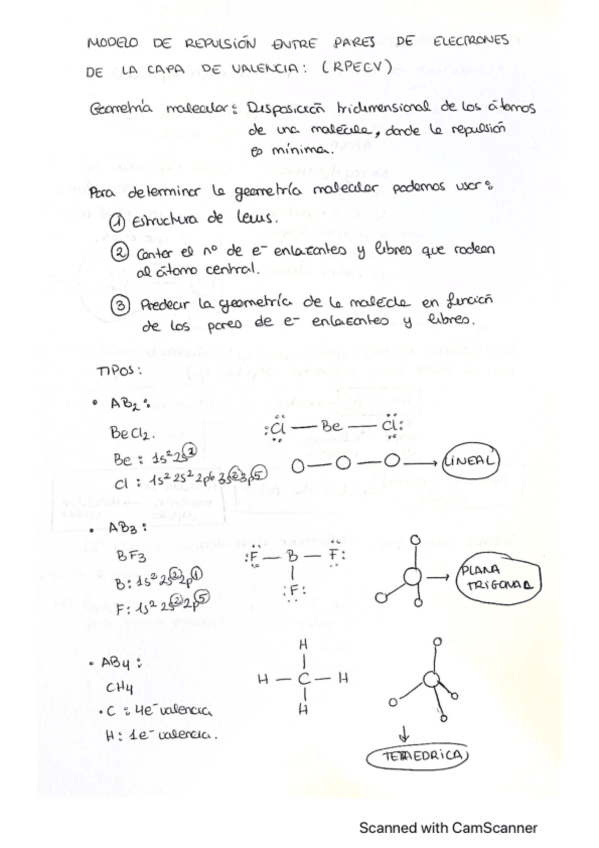 MODELO DE REPULSIÓN ENTRE PARES DE ELECTRONES
DE LA CAPA DE VALENCIA: (RPECV)
Geometría molecular: Disposición tridimensional de los átomos
de una molécula, donde la repulsión
es mínima.
Para determinar la geometría molecular podemos usar:
① Estructura de Lewis.
② Contar el nº de e⁻ enlazantes y libres que rodean
al átomo central.
③ Predecir la geometría de la molécula en función
de los pares de e⁻ enlazantes y libres.
TIPOS:
• AB₂:
BeCl₂.
:Cl — Be — Cl:
Be: 1s²2s²
O—O—O → LINEAL
Cl: 1s²2s²2p⁶3s²3p⁵
• AB₃:
BF₃
:F — B — F:
:F:
PLANA
TRIGONAL
B: 1s²2s²2p¹
F: 1s²2s²2p⁵
• AB₄:
CH₄
H
H — C — H
H
• C: 4e⁻ valencia
H: 1e⁻ valencia.
TETRAEDRICA
Scanned with CamScanner